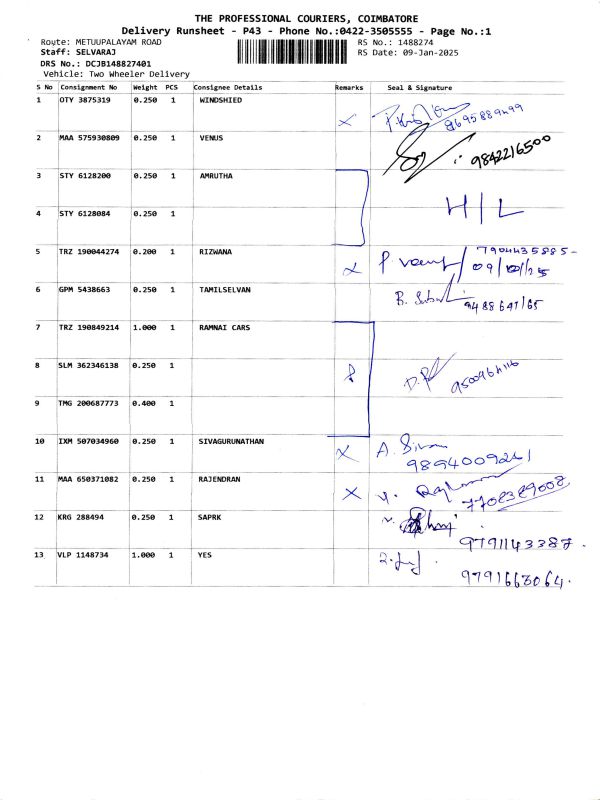 THE PROFESSIONAL COURIERS, COIMBATORE
Delivery Runsheet - P43 - Phone No.:0422-3505555 - Page No.:1
Route: METUUPALAYAM ROAD RS No.: 1488274
Staff: SELVARAJ RS Date: 09-Jan-2025
DRS No.: DCJB148827401
Vehicle: Two Wheeler Delivery
S No Consignment No Weight PCS Consignee Details Remarks Seal & Signature
1 OTY 3875319 0.250 1 WINDSHIED
2 MAA 575930809 0.250 1 VENUS 9842216500
3 STY 6128200 0.250 1 AMRUTHA
H/L
4 STY 6128084 0.250 1
5 TRZ 190044274 0.200 1 RIZWANA 7904435885-
6 GPM 5438663 0.250 1 TAMILSELVAN
7 TRZ 190849214 1.000 1 RAMNAI CARS
8 SLM 362346138 0.250 1
9 TMG 200687773 0.400 1
10 IXM 507034960 0.250 1 SIVAGURUNATHAN A. Siva
11 MAA 650371082 0.250 1 RAJENDRAN
12 KRG 288494 0.250 1 SAPRK
9791143387.
13 VLP 1148734 1.000 1 YES
9791663064.